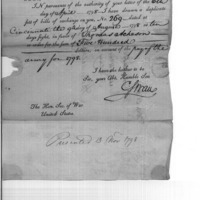 IN pursuance of the authority of your letter of the
day of April 1798. I have drawn a duplicate
sett of bills of exchange on you No. 269 dated at
Cincinnati the day of August 1798 at ten
days sight, in favor of
or order for the sum of Five Hundred
dollars, on account of the pay of the
army for 1798.
I have the honor to be
Sir, your Obt. Humble Servt.
C Swan
The Hon. Sec. of War
United States
Presented 13 Nov 1798